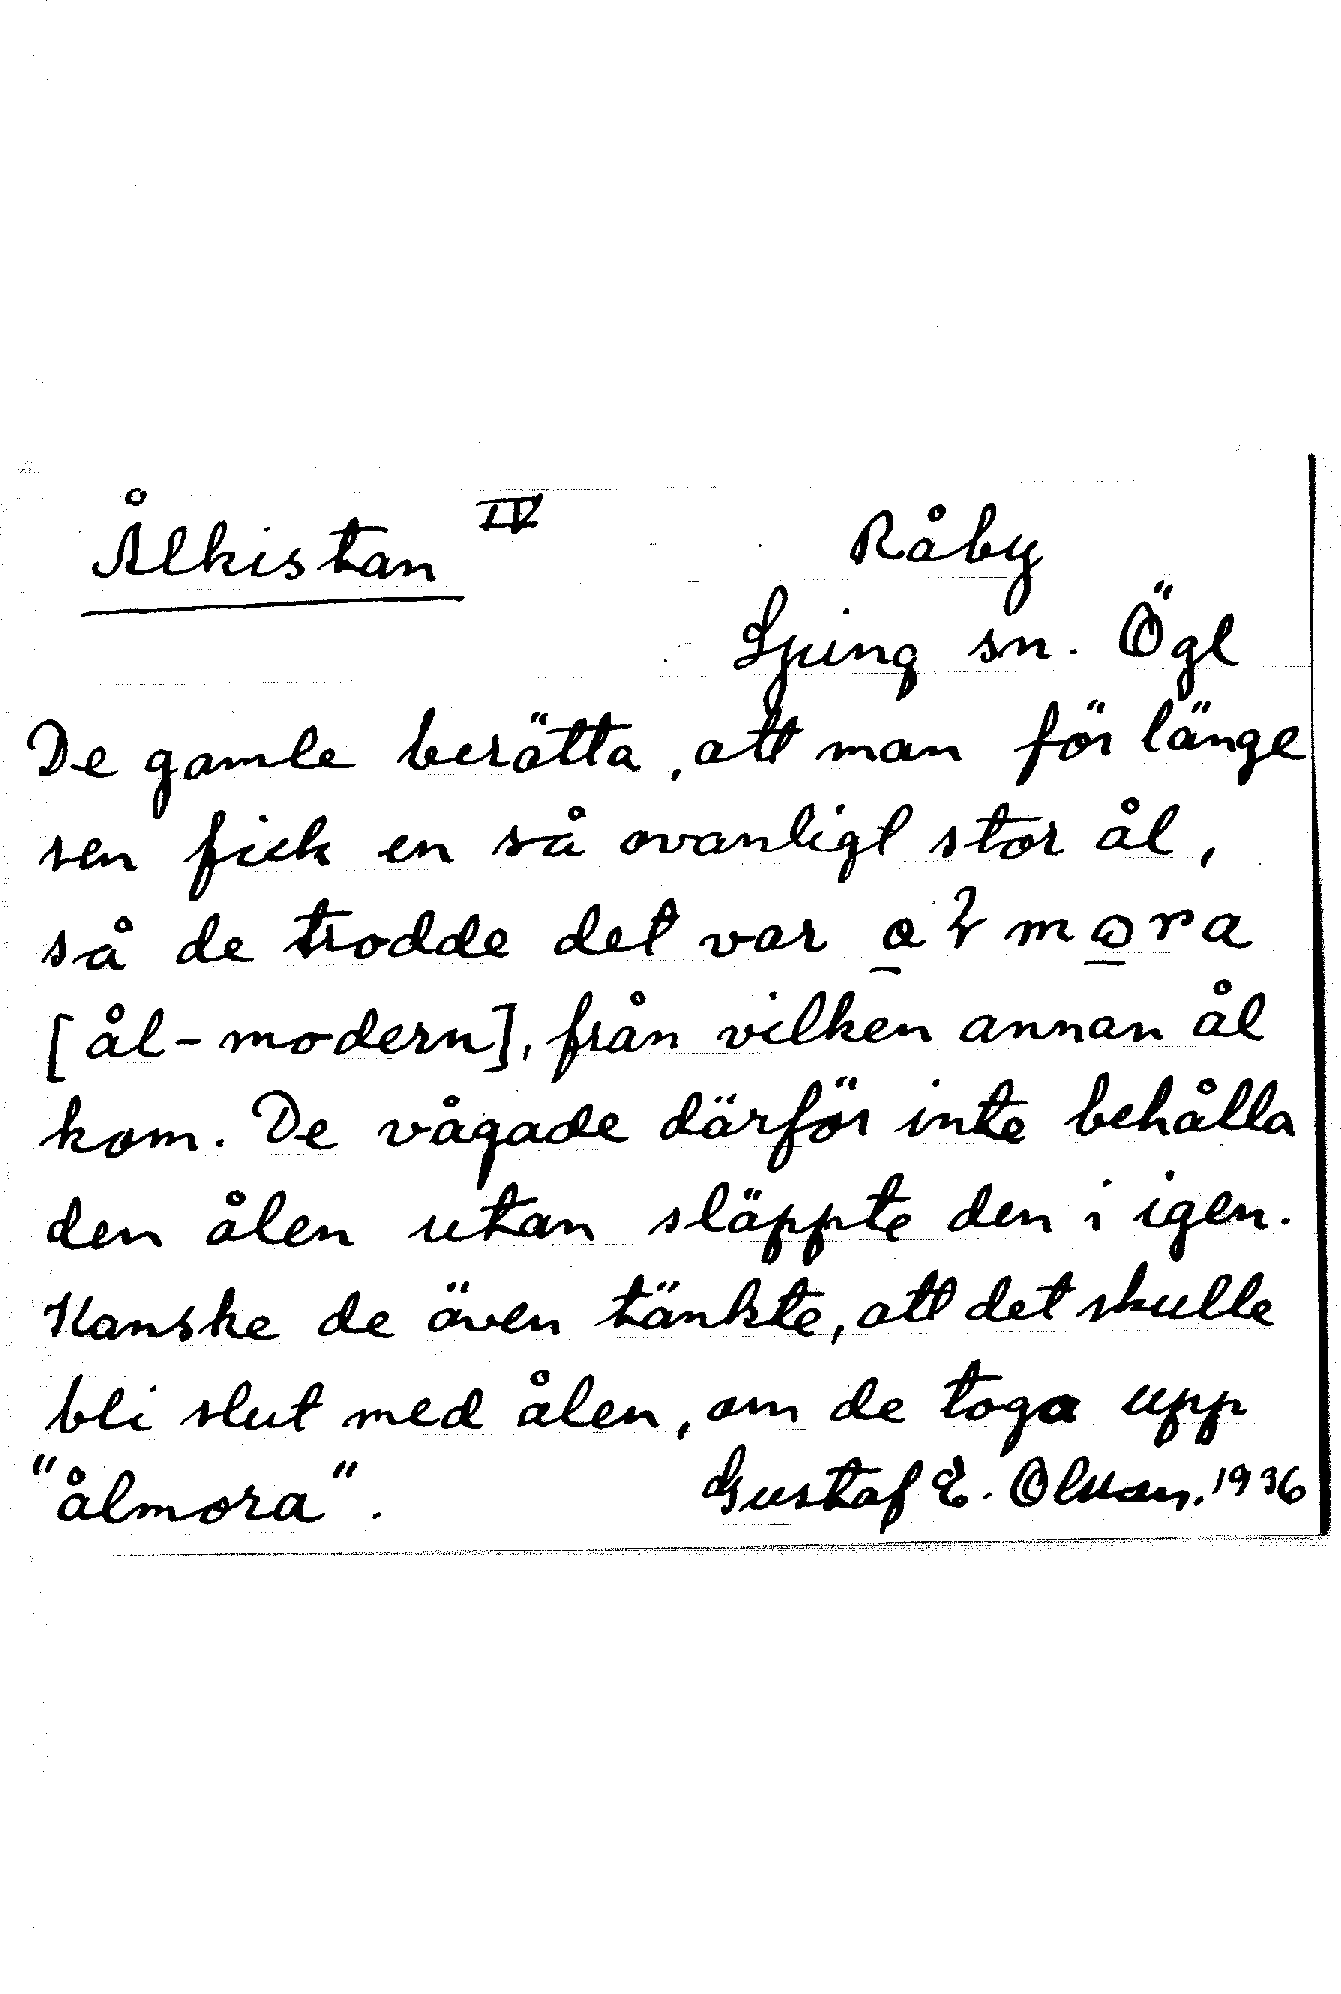 Ålkistan IV
Råby
Ljung sn. Ögl
De gamle berätta, att man för länge
sen fick en så ovanligt stor ål,
så de trodde det var
[ål-modern], från vilken annan ål
kom. De vågade därför inte behålla
den ålen utan släppte den i igen.
Kanske de även tänkte, att det skulle
bli slut med ålen, om de toga upp
"ålmora".
Gustaf E. Olsson. 1936